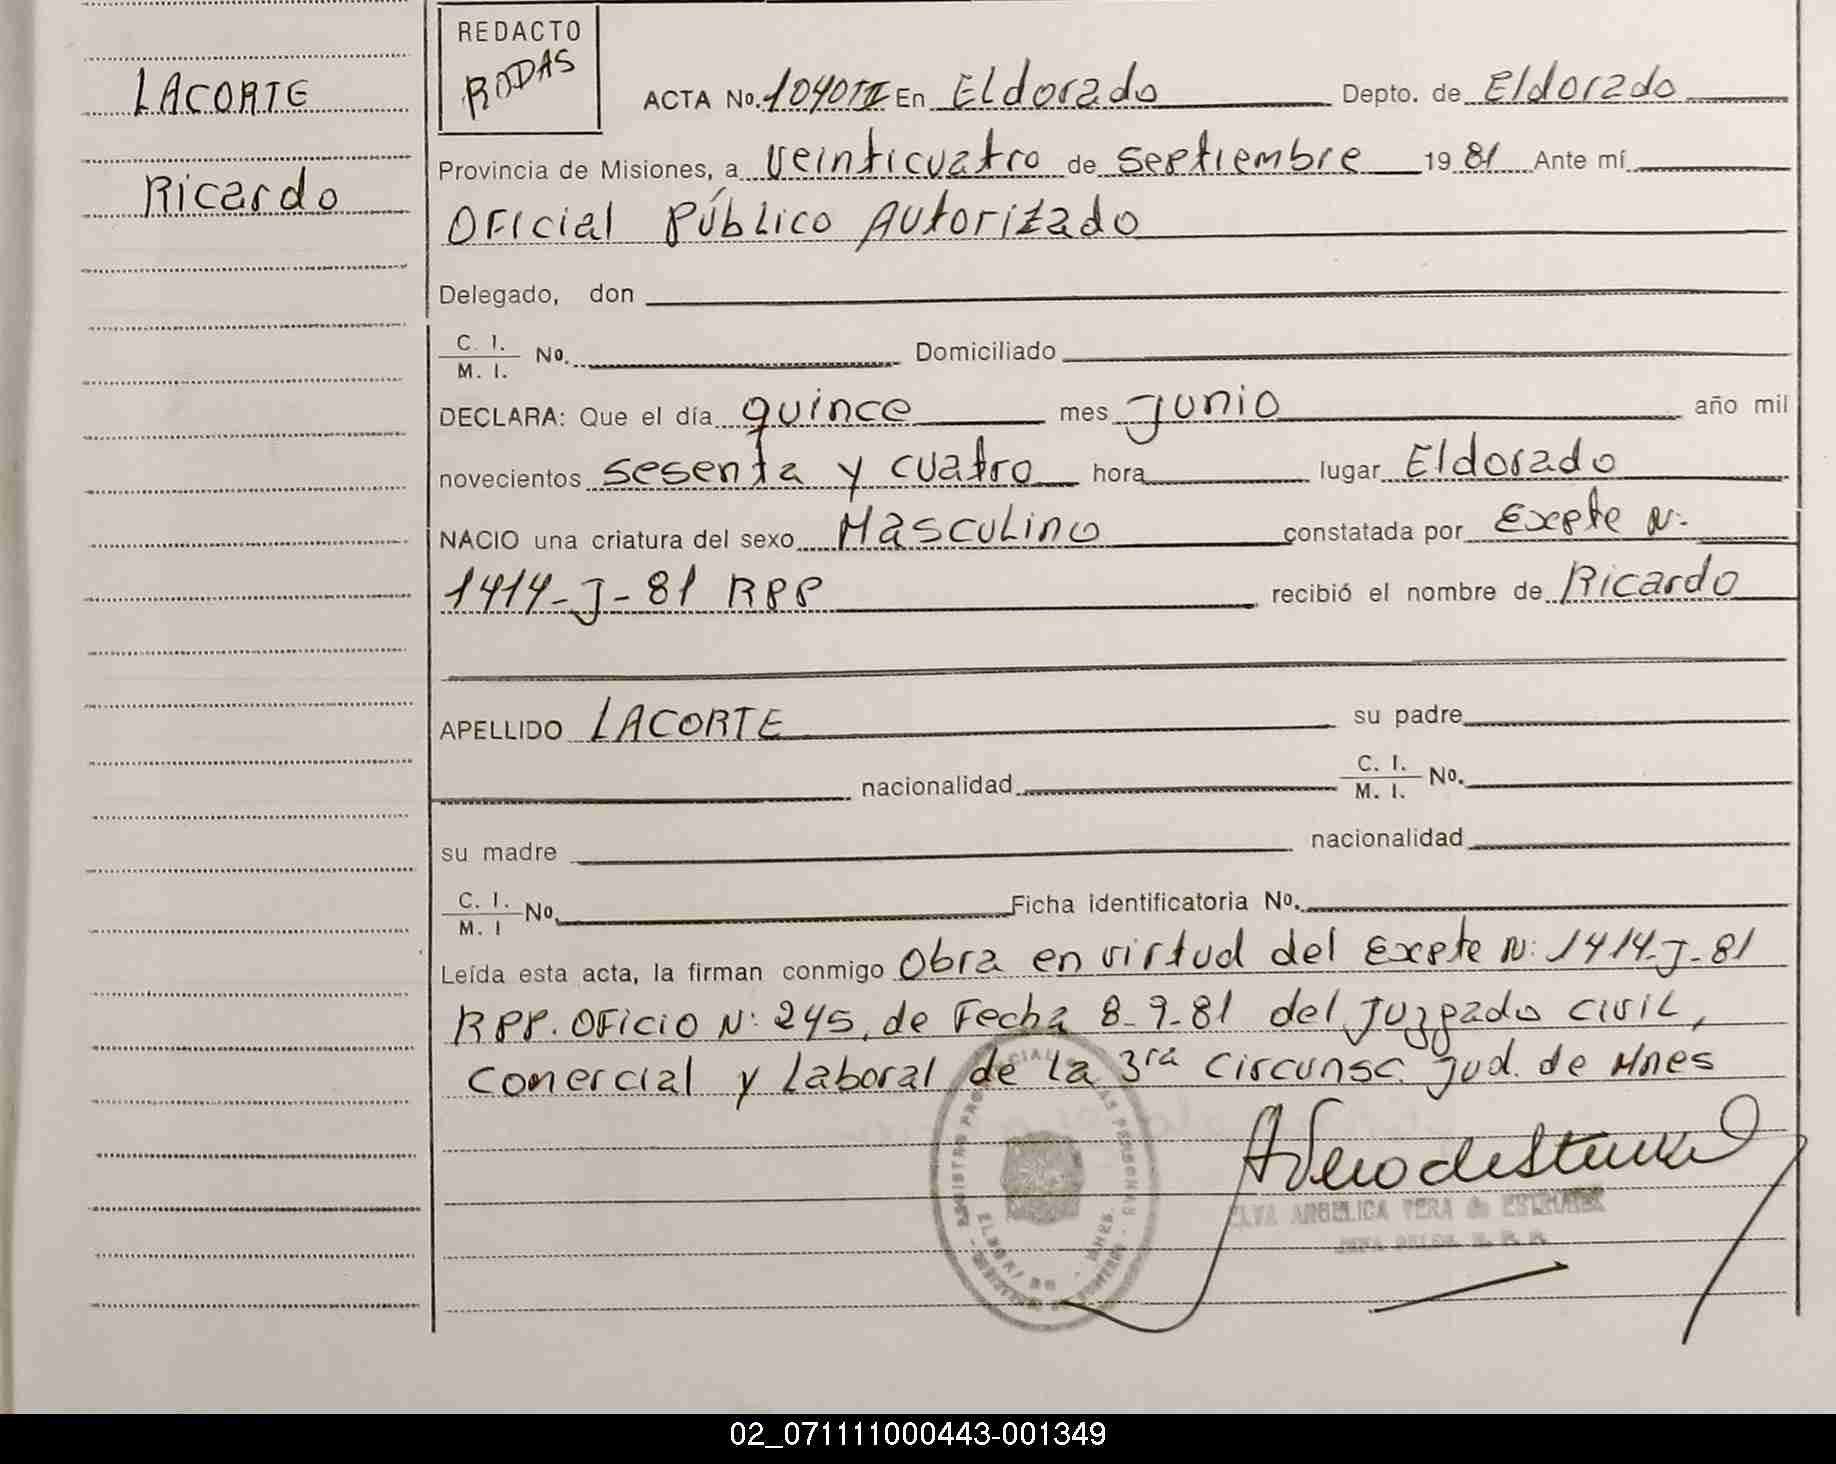 LACORTE
Ricardo
REDACTO
RODAS
ACTA No. 1040 II En Eldorado Depto. de Eldorado
Provincia de Misiones, a veinticuatro de septiembre 19 81 Ante mí
Oficial Público Autorizado
Delegado, don
C. I.
M. I.
No. Domiciliado
DECLARA: Que el día quince mes junio año mil
novecientos sesenta y cuatro hora lugar Eldorado
NACIO una criatura del sexo Masculino constatada por Expte N:
1414-J-81 RPP recibió el nombre de Ricardo
APELLIDO LACORTE su padre
nacionalidad C. I.
M. I. No.
su madre nacionalidad
C. I.
M. I No. Ficha identificatoria No.
Leída esta acta, la firman conmigo Obra en virtud del Expte N: 1414-J-81
RPP. Oficio N: 245, de Fecha 8-9-81 del Juzgado Civil,
Comercial y Laboral de la 3ra Circunsc. Jud. de Mnes
ELVA ANGELICA VERA de
02_071111000443-001349